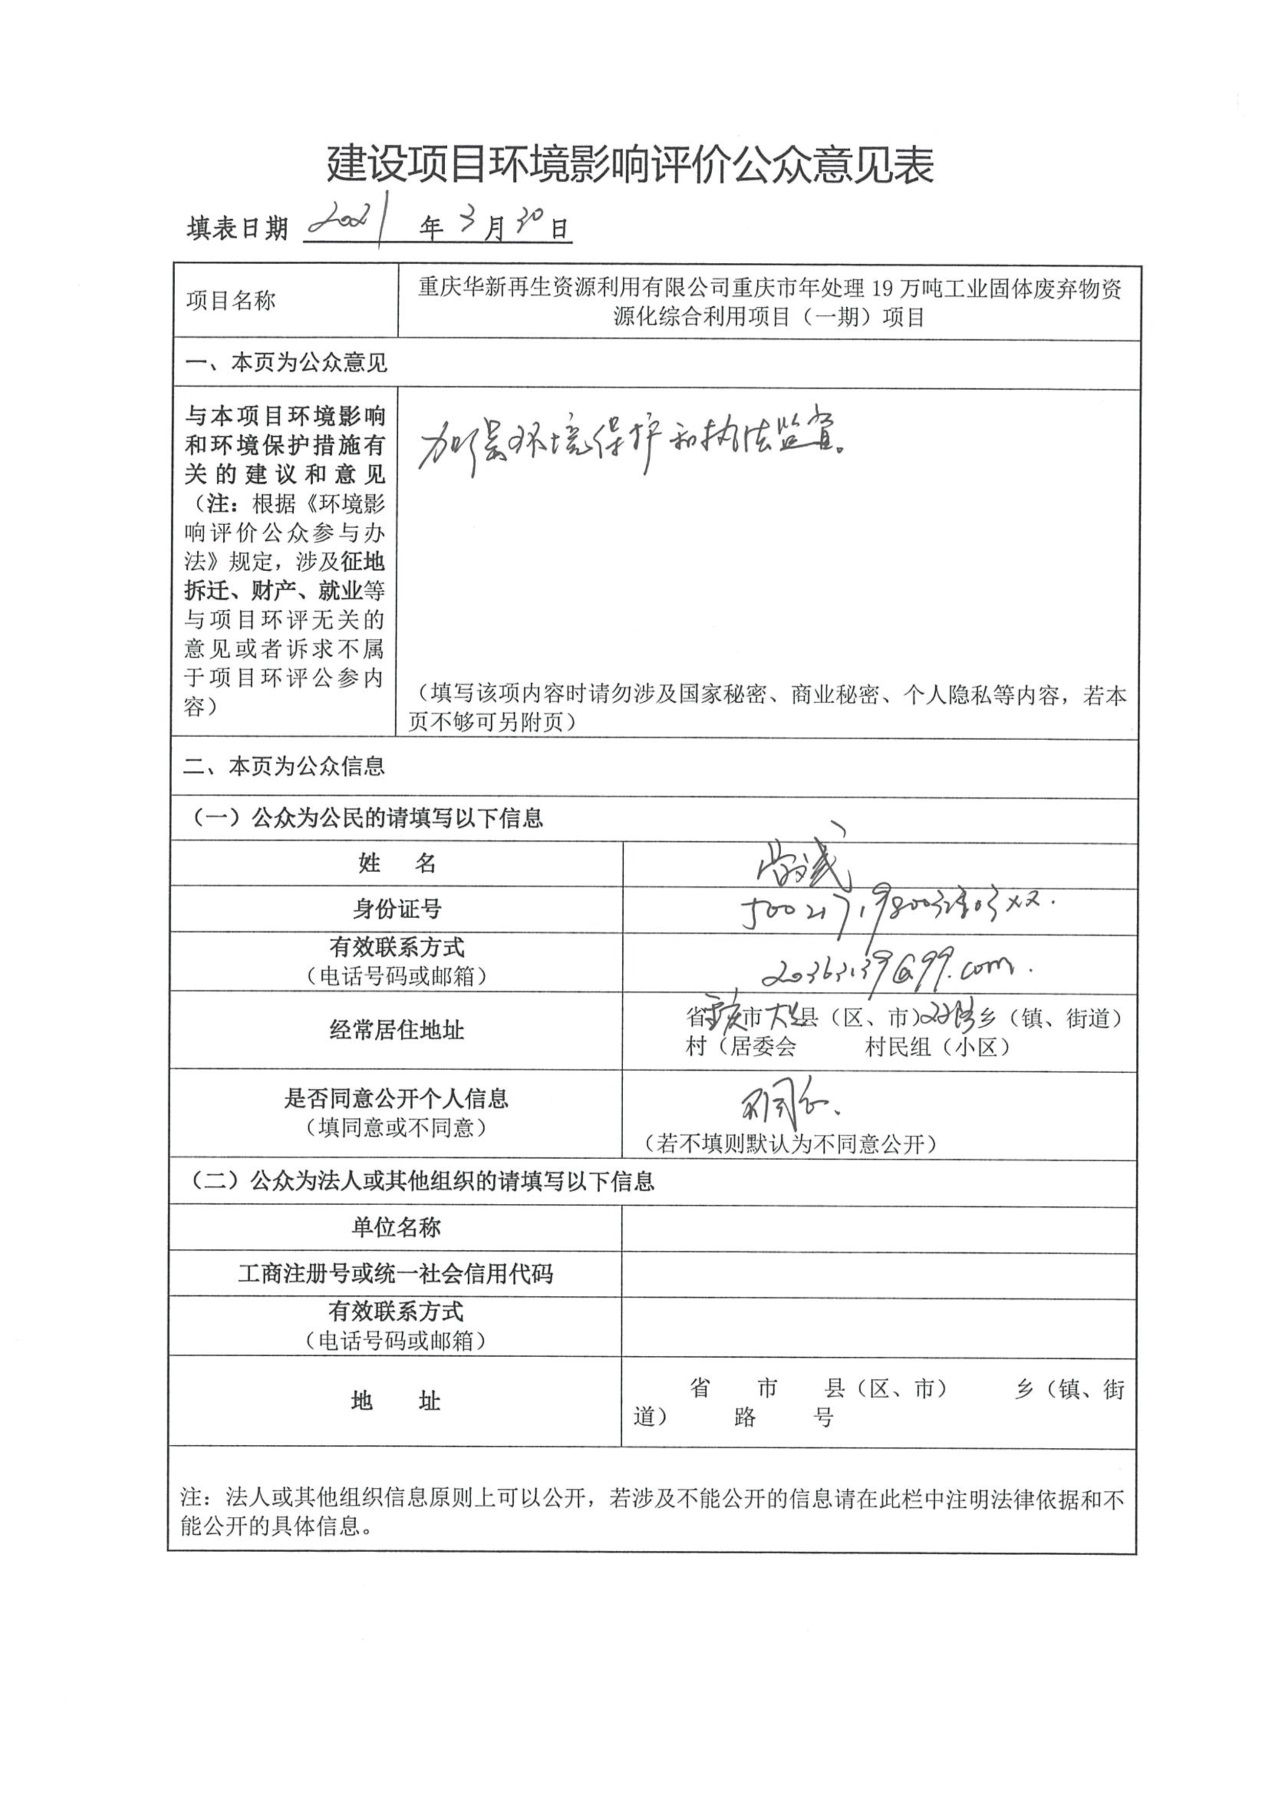 建设项目环境影响评价公众意见表
填表日期 2021 年 3 月 30 日
项目名称
重庆华新再生资源利用有限公司重庆市年处理 19 万吨工业固体废弃物资
源化综合利用项目（一期）项目
一、本页为公众意见
与本项目环境影响
和环境保护措施有
关的建议和意见
（注：根据《环境影
响评价公众参与办
法》规定，涉及征地
拆迁、财产、就业等
与项目环评无关的
意见或者诉求不属
于项目环评公参内
容）
加强环境保护和执法监督。
（填写该项内容时请勿涉及国家秘密、商业秘密、个人隐私等内容，若本
页不够可另附页）
二、本页为公众信息
（一）公众为公民的请填写以下信息
姓 名
身份证号
有效联系方式
（电话号码或邮箱）
经常居住地址
省重庆市 县（区、市） 乡（镇、街道）
村（居委会 村民组（小区）
是否同意公开个人信息
（填同意或不同意）
不同意.
（若不填则默认为不同意公开）
（二）公众为法人或其他组织的请填写以下信息
单位名称
工商注册号或统一社会信用代码
有效联系方式
（电话号码或邮箱）
地 址
省 市 县（区、市） 乡（镇、街
道） 路 号
注：法人或其他组织信息原则上可以公开，若涉及不能公开的信息请在此栏中注明法律依据和不
能公开的具体信息。